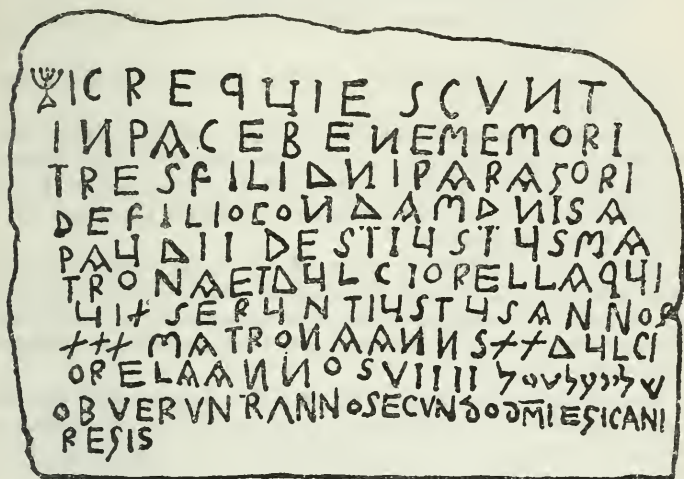 IC REQUIESCVNT
IN PACE BENEMEMORI
TRES FILI DNI PARAGORI
DE FILIO CONDAM DNI SA
PAUDI I DEST IUSTUS MA
TRONA ET DULCIORELLA QUI
UIXSERUNT IUSTUS ANNOS
XXX MATRONA ANNS XX DULCI
ORELA ANNOS VIIII
OBVERVNR ANNO SECVNDO DMI EGICANI
REGIS